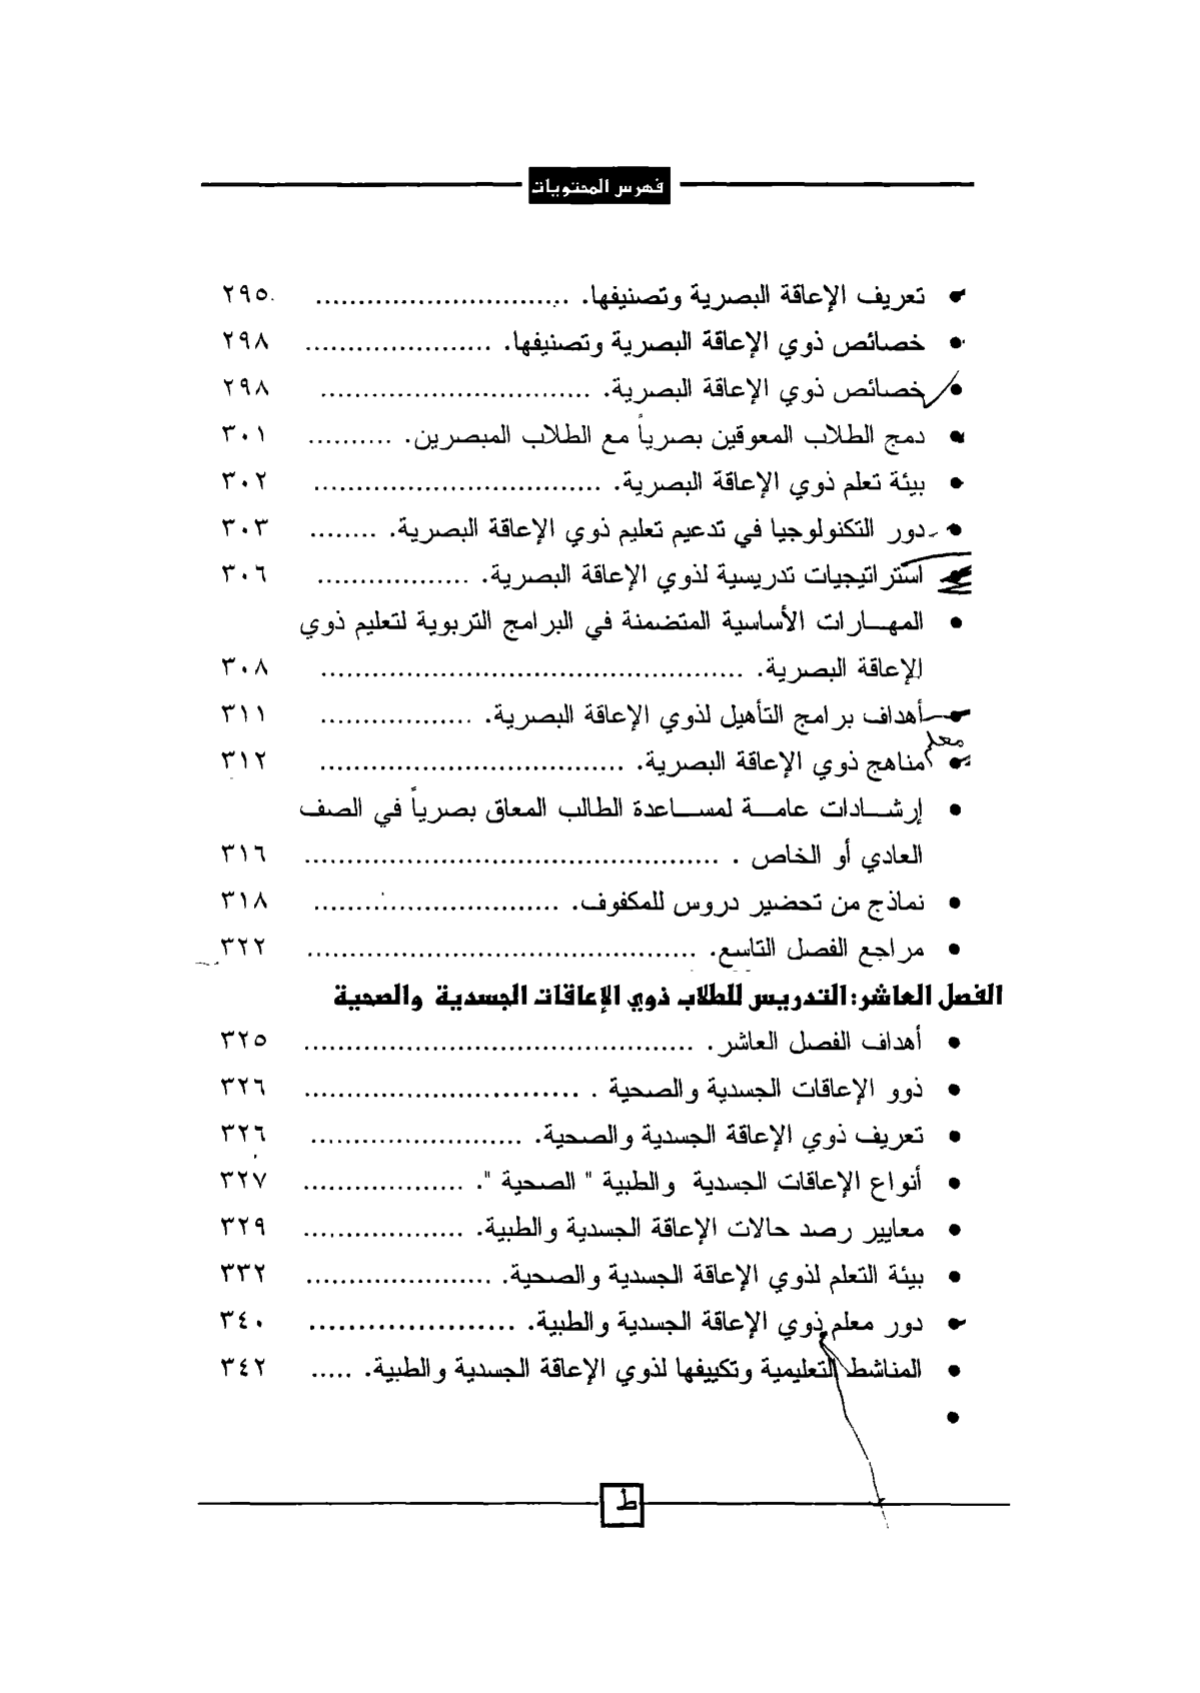 فهرس المحتويات
• تعريف الإعاقة البصرية وتصنيفها. .............................. ٢٩٥
• خصائص ذوي الإعاقة البصرية وتصنيفها. ...................... ٢٩٨
• خصائص ذوي الإعاقة البصرية. ................................ ٢٩٨
• دمج الطلاب المعوقين بصرياً مع الطلاب المبصرين. .......... ٣٠١
• بيئة تعلم ذوي الإعاقة البصرية. .................................. ٣٠٢
• دور التكنولوجيا في تدعيم تعليم ذوي الإعاقة البصرية. ........ ٣٠٣
• استراتيجيات تدريسية لذوي الإعاقة البصرية. .................. ٣٠٦
• المهارات الأساسية المتضمنة في البرامج التربوية لتعليم ذوي
الإعاقة البصرية. .................................................. ٣٠٨
• أهداف برامج التأهيل لذوي الإعاقة البصرية. .................. ٣١١
معلم
• مناهج ذوي الإعاقة البصرية. .................................... ٣١٢
• إرشادات عامة لمساعدة الطالب المعاق بصرياً في الصف
العادي أو الخاص . ................................................. ٣١٦
• نماذج من تحضير دروس للمكفوف. ............................. ٣١٨
• مراجع الفصل التاسع. .............................................. ٣٢٢
الفصل العاشر: التدريس للطلاب ذوي الإعاقات الجسدية والصحية
• أهداف الفصل العاشر. .............................................. ٣٢٥
• ذوو الإعاقات الجسدية والصحية . ................................ ٣٢٦
• تعريف ذوي الإعاقة الجسدية والصحية. ......................... ٣٢٦
• أنواع الإعاقات الجسدية والطبية " الصحية ". ................... ٣٢٧
• معايير رصد حالات الإعاقة الجسدية والطبية. ................... ٣٢٩
• بيئة التعلم لذوي الإعاقة الجسدية والصحية. ...................... ٣٣٢
• دور معلم ذوي الإعاقة الجسدية والطبية. ...................... ٣٤٠
• المناشط التعليمية وتكييفها لذوي الإعاقة الجسدية والطبية. ..... ٣٤٢
•
ط